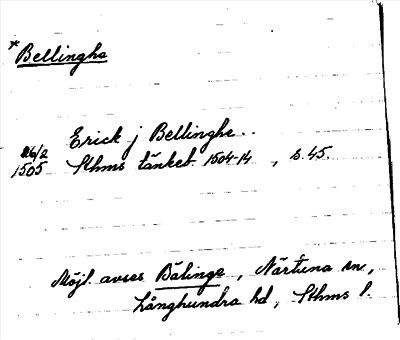 *Bellinghe
Erick j Bellinghe..
26/2
1505 Sthms tänkeb. 1504-14, s. 45.
Möjl. avses Bälinge, Närtuna sn,
Långhundra hd, Sthms l.